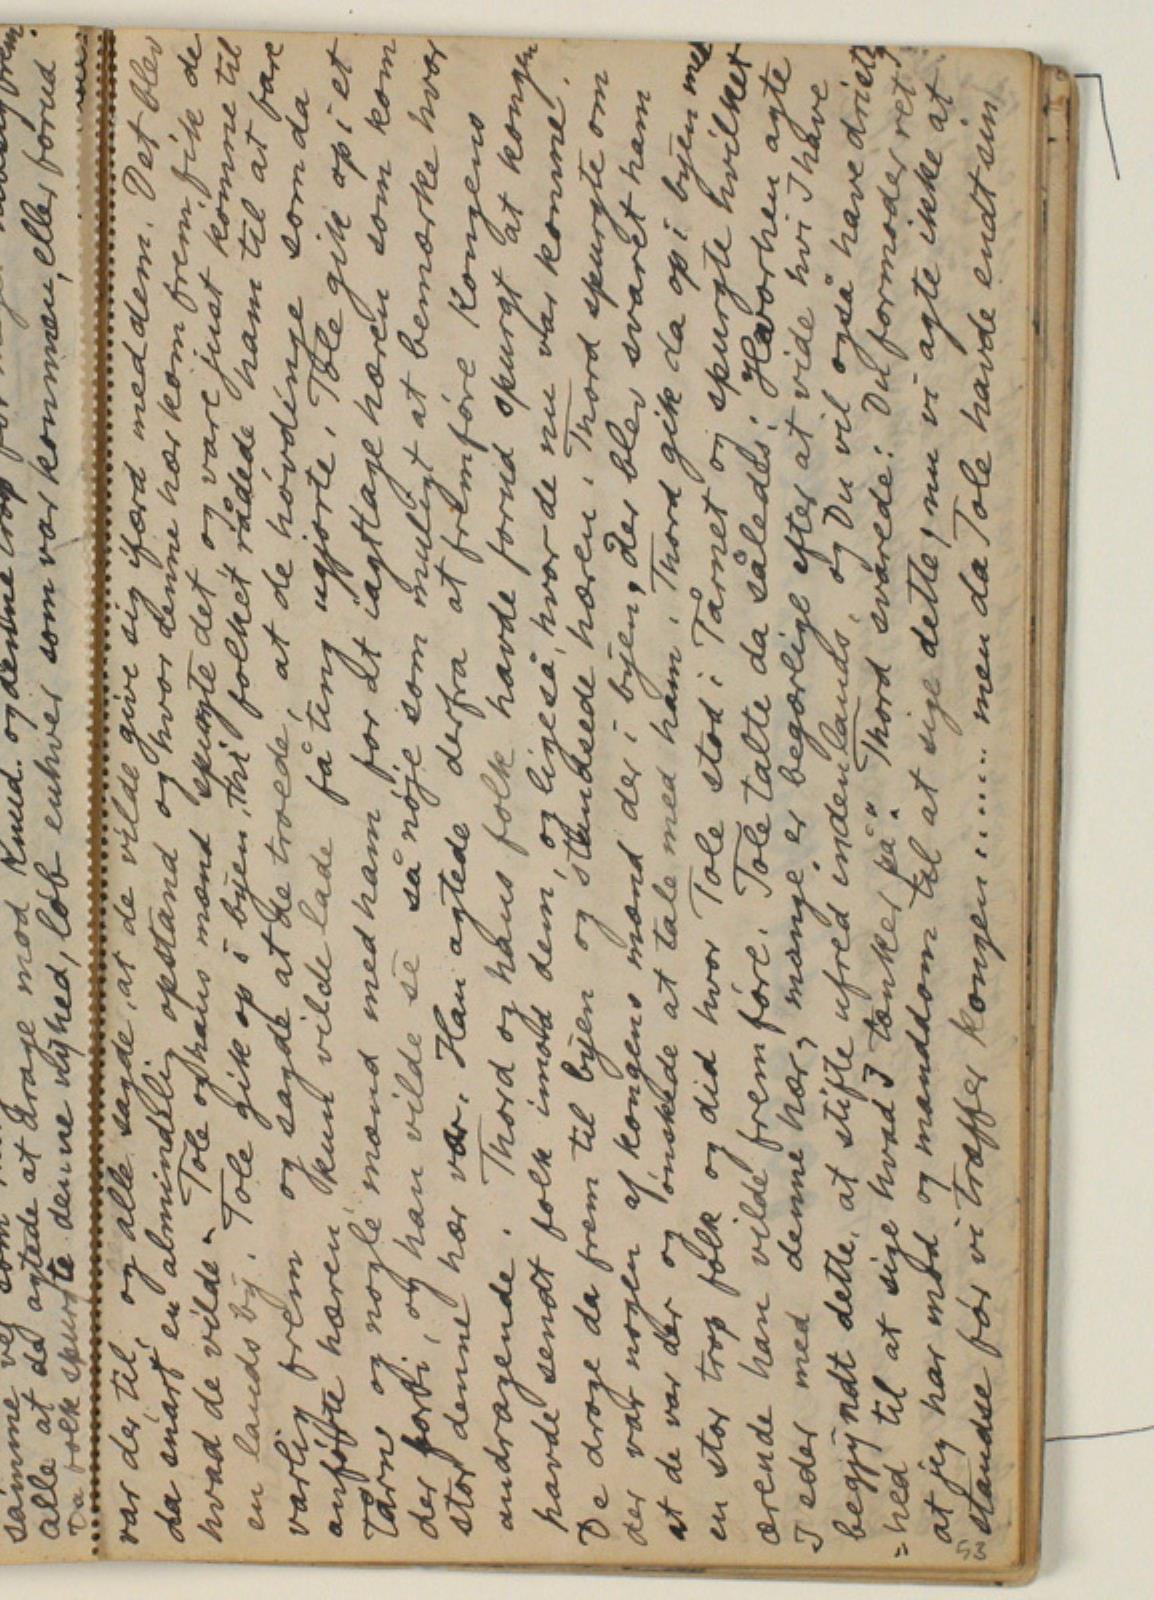 samme vej som
alle at de agtede at drage mod Knud. og denne trop
Da folk spurte denne nyhed, løb enhver som var kommen, eller forud
var der til, og alle sagde, at de vilde give sig ifærd med dem. Det blev
da snart en almindelig opstand og hvor denne hær kom frem, fik de
hvad de vilde - Tole og hans mænd spurgte det og vare just komne til
en landsby. Tole gik op i byen, thi folket rådede ham til at fare
varlig frem og sagde at de troede, at de høvdinge som da
anførte hæren, kun vilde lade få ting ugjorte. Tole gik op i et
Tårn og nogle mænd med ham for at iagttage hæren som kom
der forbi, og han vilde se så nøje som muligt at bemærke hvor
stor denne hær var. Han agtede derfra at fremføre Kongens
andragende. Thord og hans folk havde forud spurgt at kongen
havde sendt folk imod dem, og ligeså, hvor de nu var komne.
De droge da frem til byen og standsede hæren. Thord spurgte om
der var nogen af kongens mænd der i byen, der blev svaret ham
at de var der og ønskede at tale med ham. Thord gik da op i byen med
en stor trop folk og did hvor Tole stod i Tårnet og spurgte hvilket
ærende han vilde fremføre. Tole talte da således: Hvorhen agte
I eder med denne hær, mange er begærlige efter at vide hvi I have
begyndt dette, at stifte ufred indenlands, og Du vil også have driet=
=hed til at sige hvad I tænker på." Thord svarede: Du formoder ret,
at jeg har mod og manddom til at sige dette, nu vi agte ikke at
standse før vi træffer kongen ....... men da Tole havde endt sin
53